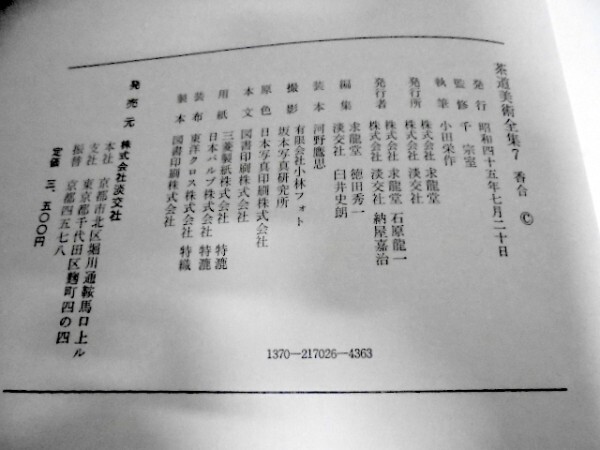 茶道美術全集7 香合 ©
発行 昭和四十五年七月二十日
監修 千 宗室
執筆 小田栄作
発行所 株式会社 求龍堂
株式会社 淡交社
発行者 株式会社 求龍堂 石原龍一
株式会社 淡交社 納屋嘉治
編集 求龍堂 徳田秀一
淡交社 臼井史朗
装本 河野鷹思
撮影 有限会社小林フォト
坂本写真研究所
原色 日本写真印刷株式会社
本文 図書印刷株式会社
用紙 三菱製紙株式会社 特漉
日本パルプ株式会社 特漉
装布 東洋クロス株式会社 特織
製本 図書印刷株式会社
発売元 株式会社淡交社
本社 京都市北区堀川通鞍馬口上ル
支社 東京都千代田区麹町四の四
振替 京都四五七八
定価 三、五〇〇円
1370―217026―4363